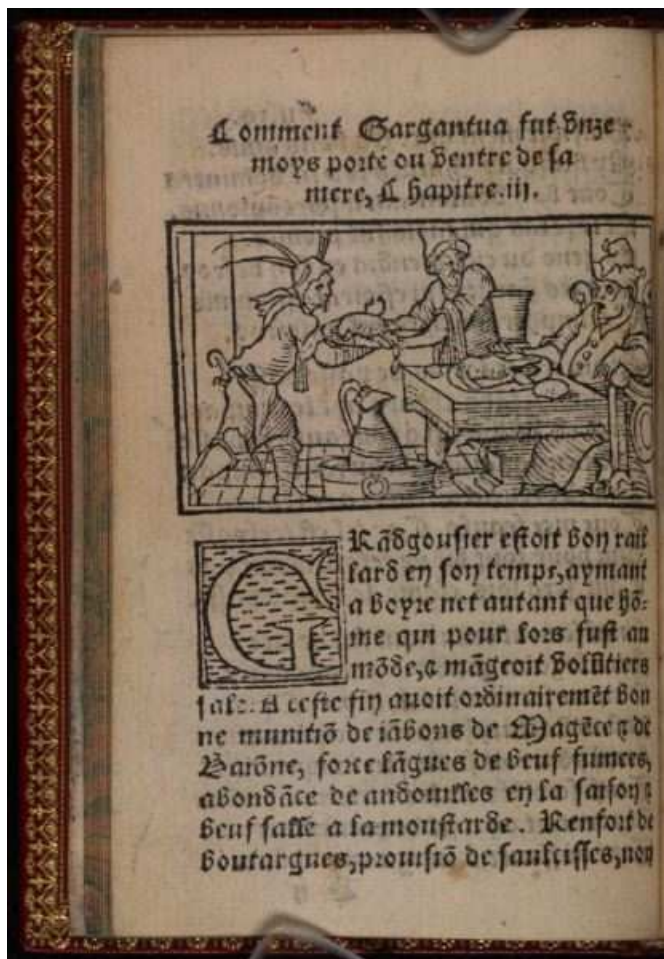 Comment Gargantua fut vnze
moys porte ou ventre de sa
mere, Chapitre.iii.
GRãdgousier estoit bon rail
lard en son temps, aymant
a boyre net autant que hõ-
me qui pour lors fust au
mõde, & mãgeoit volũtiers
salé. A ceste fin auoit ordinairemẽt bon
ne munitiõ de iãbons de Magẽce & de
Baiõne, force lãgues de beuf fumees,
abondãce de andouilles en la saison &
beuf salle a la moustarde. Renfort de
boutargues, prouisiõ de saulcisses, non